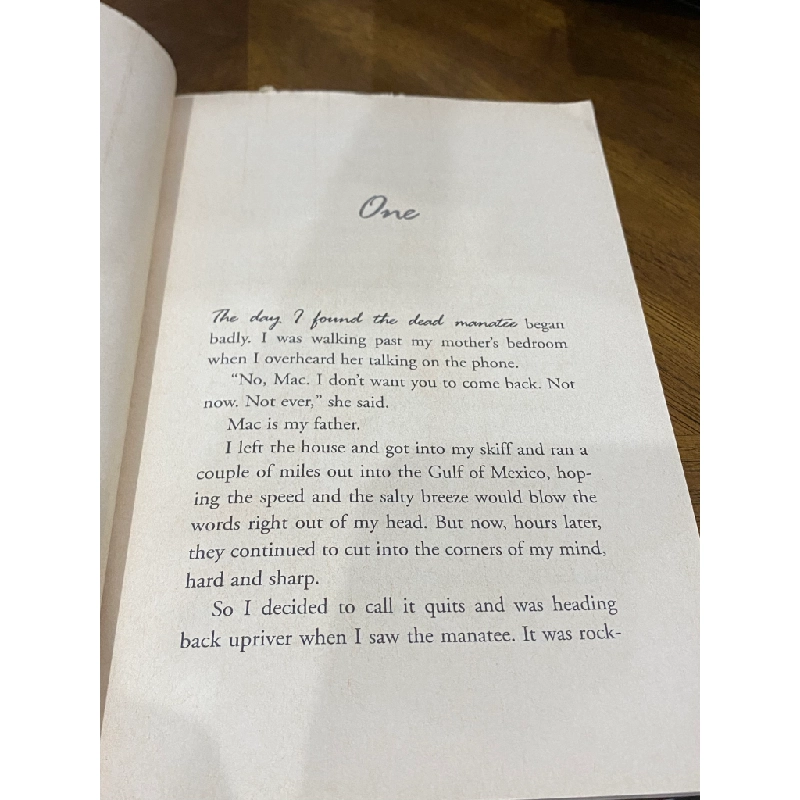 One
The day I found the dead manatee began
badly. I was walking past my mother's bedroom
when I overheard her talking on the phone.
"No, Mac. I don't want you to come back. Not
now. Not ever," she said.
Mac is my father.
I left the house and got into my skiff and ran a
couple of miles out into the Gulf of Mexico, hop-
ing the speed and the salty breeze would blow the
words right out of my head. But now, hours later,
they continued to cut into the corners of my mind,
hard and sharp.
So I decided to call it quits and was heading
back upriver when I saw the manatee. It was rock-